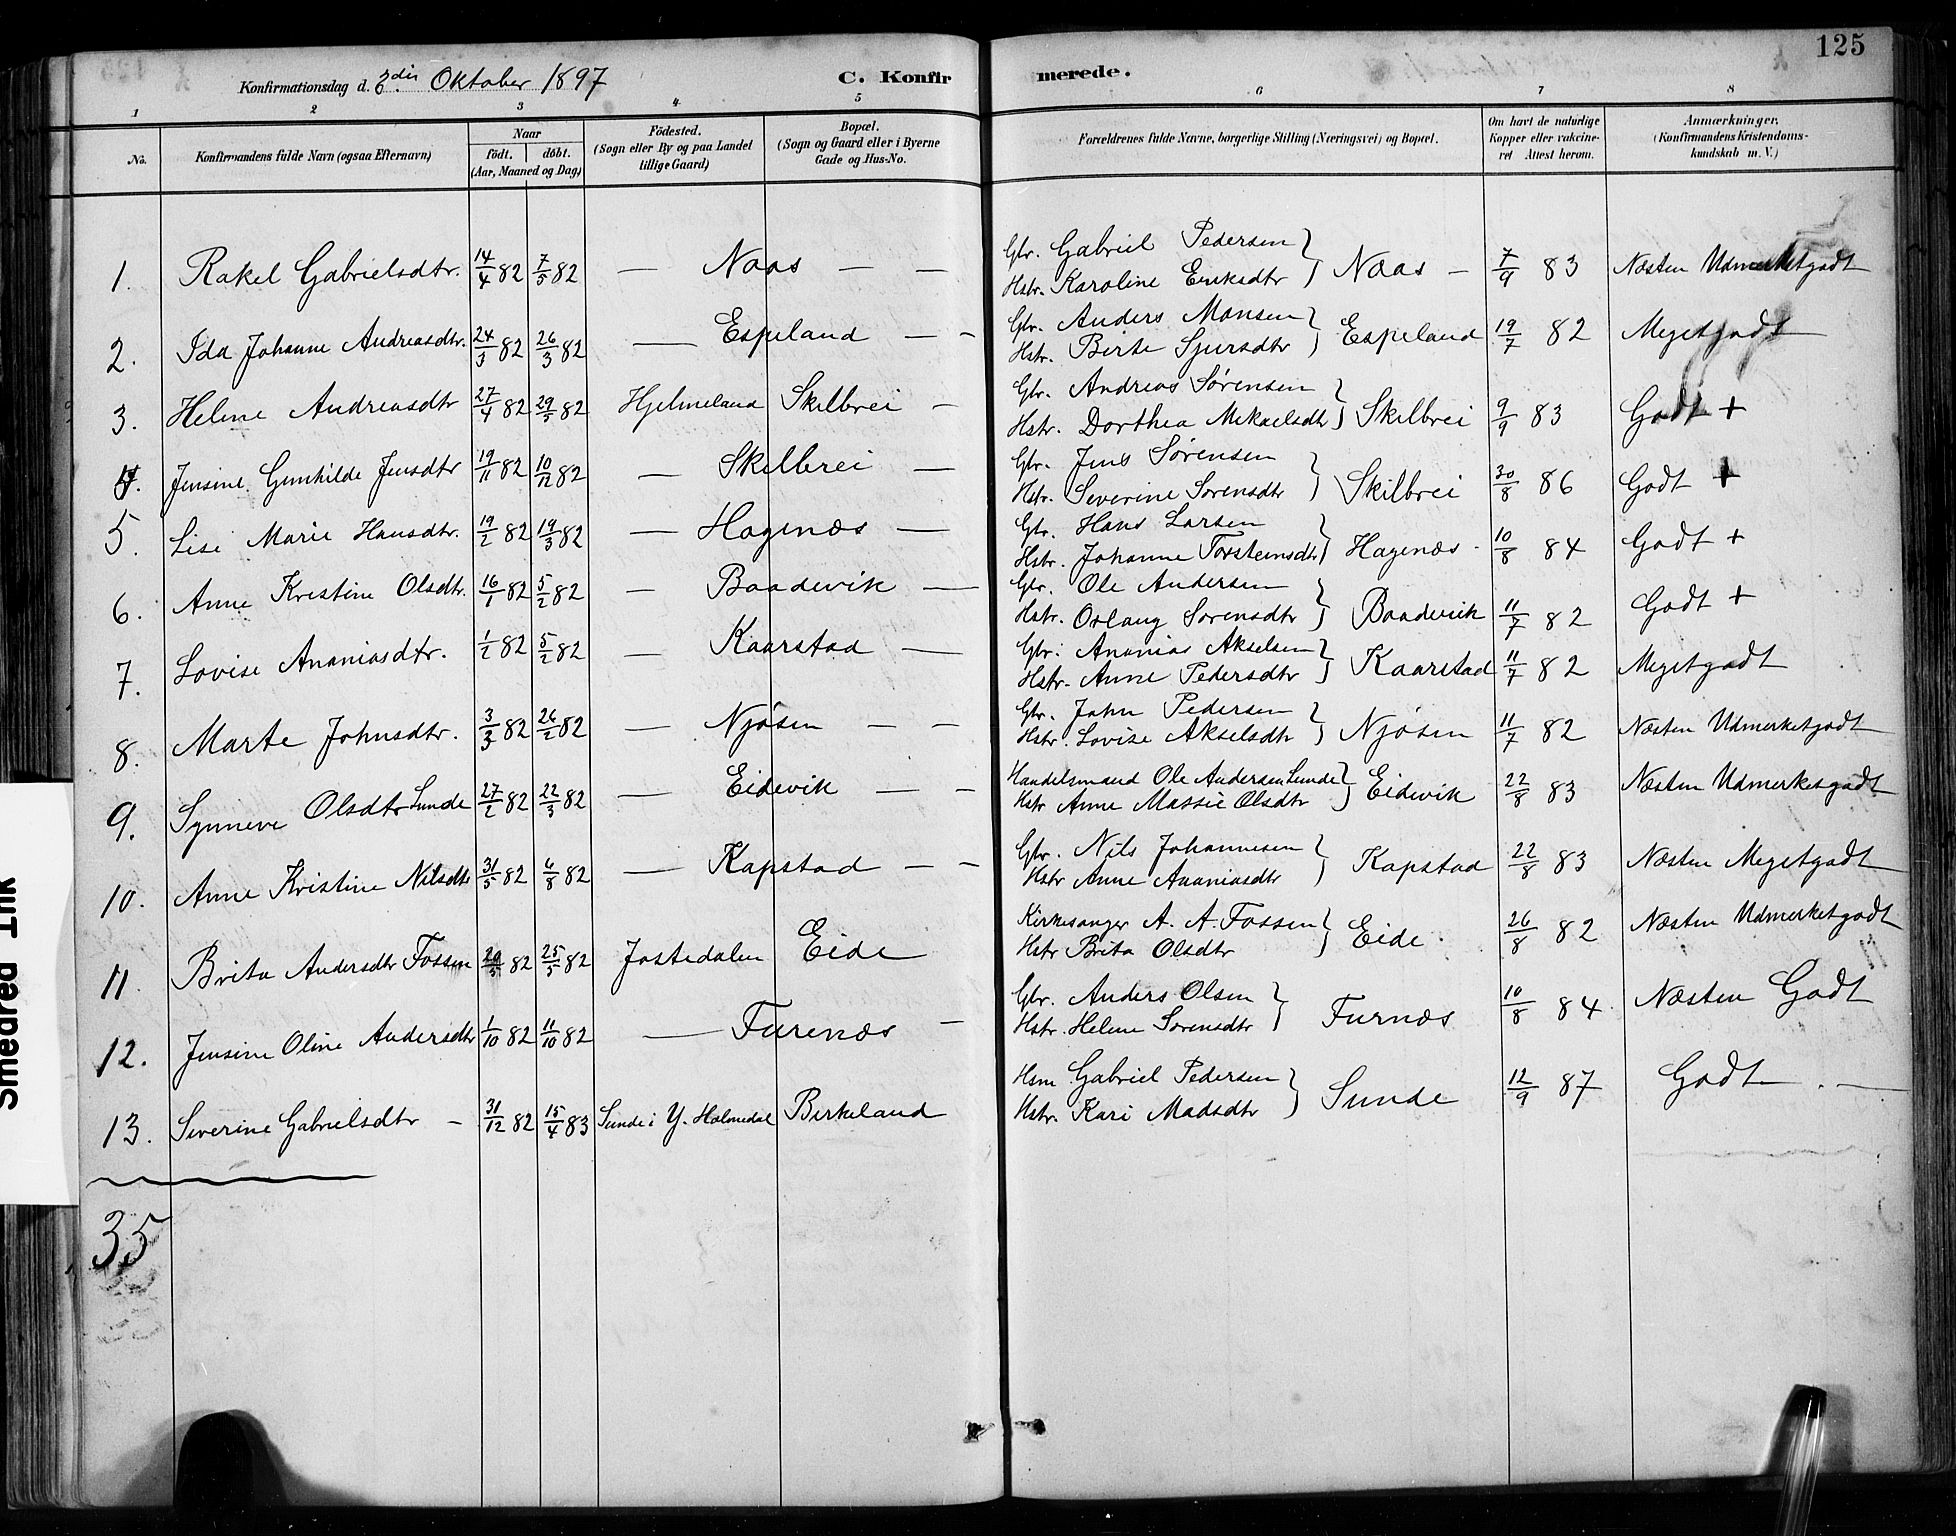 125
Konfirmationsdag d. 3die Oktober 1897 C. Konfirmerede.
1 2 3 4 5 6 7 8
No. Konfirmandens fulde Navn (ogsaa Efternavn) Naar født. døbt. (Aar, Maaned og Dag) Födested. (Sogn eller By og paa Landet tillige Gaard) Bopæl. (Sogn og Gaard eller i Byerne Gade og Hus-No. Forældrenes fulde Navne, borgerlige Stilling (Næringsvei) og Bopæl. Om havt de naturlige Kopper eller vakcineret Attest herom. Anmærkninger. (Konfirmandens Kristendomskundskab m. V.)
1. Rakel Gabrielsdtr. 14/4 82 7/5 82 — Naas — — Gbr. Gabriel Pedersen Hstr. Karoline Eriksdtr } Naas — 7/9 83 Næsten Udmerketgodt
2. Ida Johanne Andreasdtr. 24/3 82 26/3 82 — Espeland — - Gbr. Anders Monsen Hstr. Birte Sjursdtr } Espeland 19/7 82 Megetgodt
3. Helene Andreasdtr 27/4 82 29/5 82 Hjelmeland Skilbrei - Gbr. Andreas Sørensen Hstr. Dorthea Mikaelsdtr } Skilbrei 9/9 83 Godt +
4. Jensine Gunhilde Jensdtr 19/11 82 10/12 82 — Skilbrei — Gbr. Jens Sørensen Hstr. Severine Sørensdtr } Skilbrei 30/8 86 Godt +
5. Lise Marie Hansdtr. 19/2 82 19/3 82 — Hagenæs — Gbr. Hans Larsen Hstr. Johanne Torsteinsdtr } Hagenæs - 10/8 84 Godt +
6. Anne Kristine Olsdtr. 16/1 82 5/2 82 — Baadevik — Gbr. Ole Andersen Hstr. Orlaug Sørensdtr } Baadevik 11/7 82 Godt +
7. Lovise Ananiasdtr. 1/2 82 5/2 82 — Kaarstad — Gbr. Ananias Akselsen Hstr. Anne Pedersdtr } Kaarstad 11/7 82 Megetgodt
8. Marte Johnsdtr. 3/3 82 26/2 82 — Njøsen — — Gbr. John Pedersen Hstr. Lovise Akselsdtr } Njøsen 11/7 82 Næsten Udmerketgodt
9. Synneve Olsdtr Sunde 27/2 82 22/3 82 — Eidevik — - Handelsmand Ole Andersen Sunde Hstr Anne Massie Olsdtr } Eidevik 22/8 83 Næsten Udmerketgodt
10. Anne Kristine Nilsdtr 31/5 82 6/8 82 — Kapstad — - Gbr. Nils Johannesen Hstr Anne Ananiasdtr } Kapstad 22/8 83 Næsten Megetgodt
11 Brita Andersdtr Fossen 82 25/5 82 Jostedalen Eide Kirkesanger A. A. Fossen Hstr Brita Olsdtr } Eide 26/8 82 Næsten Udmerketgodt
12. Jensine Oline Andersdtr 1/10 82 11/10 82 — Furenæs — Gbr. Anders Olsen Hstr. Helene Sørensdtr } Furnæs 10/8 84 Næsten Godt
13. Severine Gabrielsdtr - 31/12 82 15/4 83 Sunde i Y. Holmedal Birkeland Hsm Gabriel Pedersen Hstr. Kari Madsdtr } Sunde 12/9 87 Godt . —
35
Smedred Ink